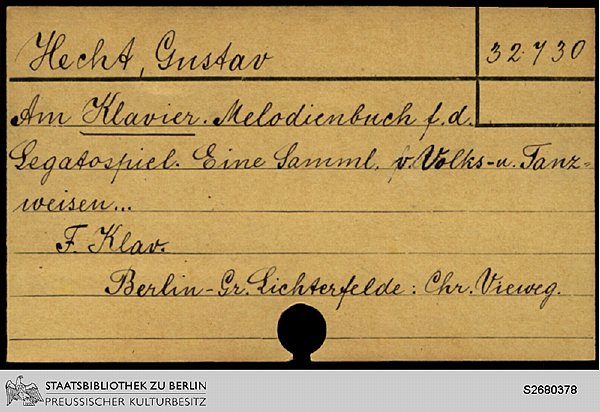 Hecht, Gustav
32730
Am Klavier. Melodienbuch f. d.
Legatospiel. Eine Samml. v. Volks- u. Tanz-
weisen...
F. Klav.
Berlin-Gr. Lichterfelde: Chr. Vieweg.
STAATSBIBLIOTHEK ZU BERLIN
PREUSSISCHER KULTURBESITZ
S2680378